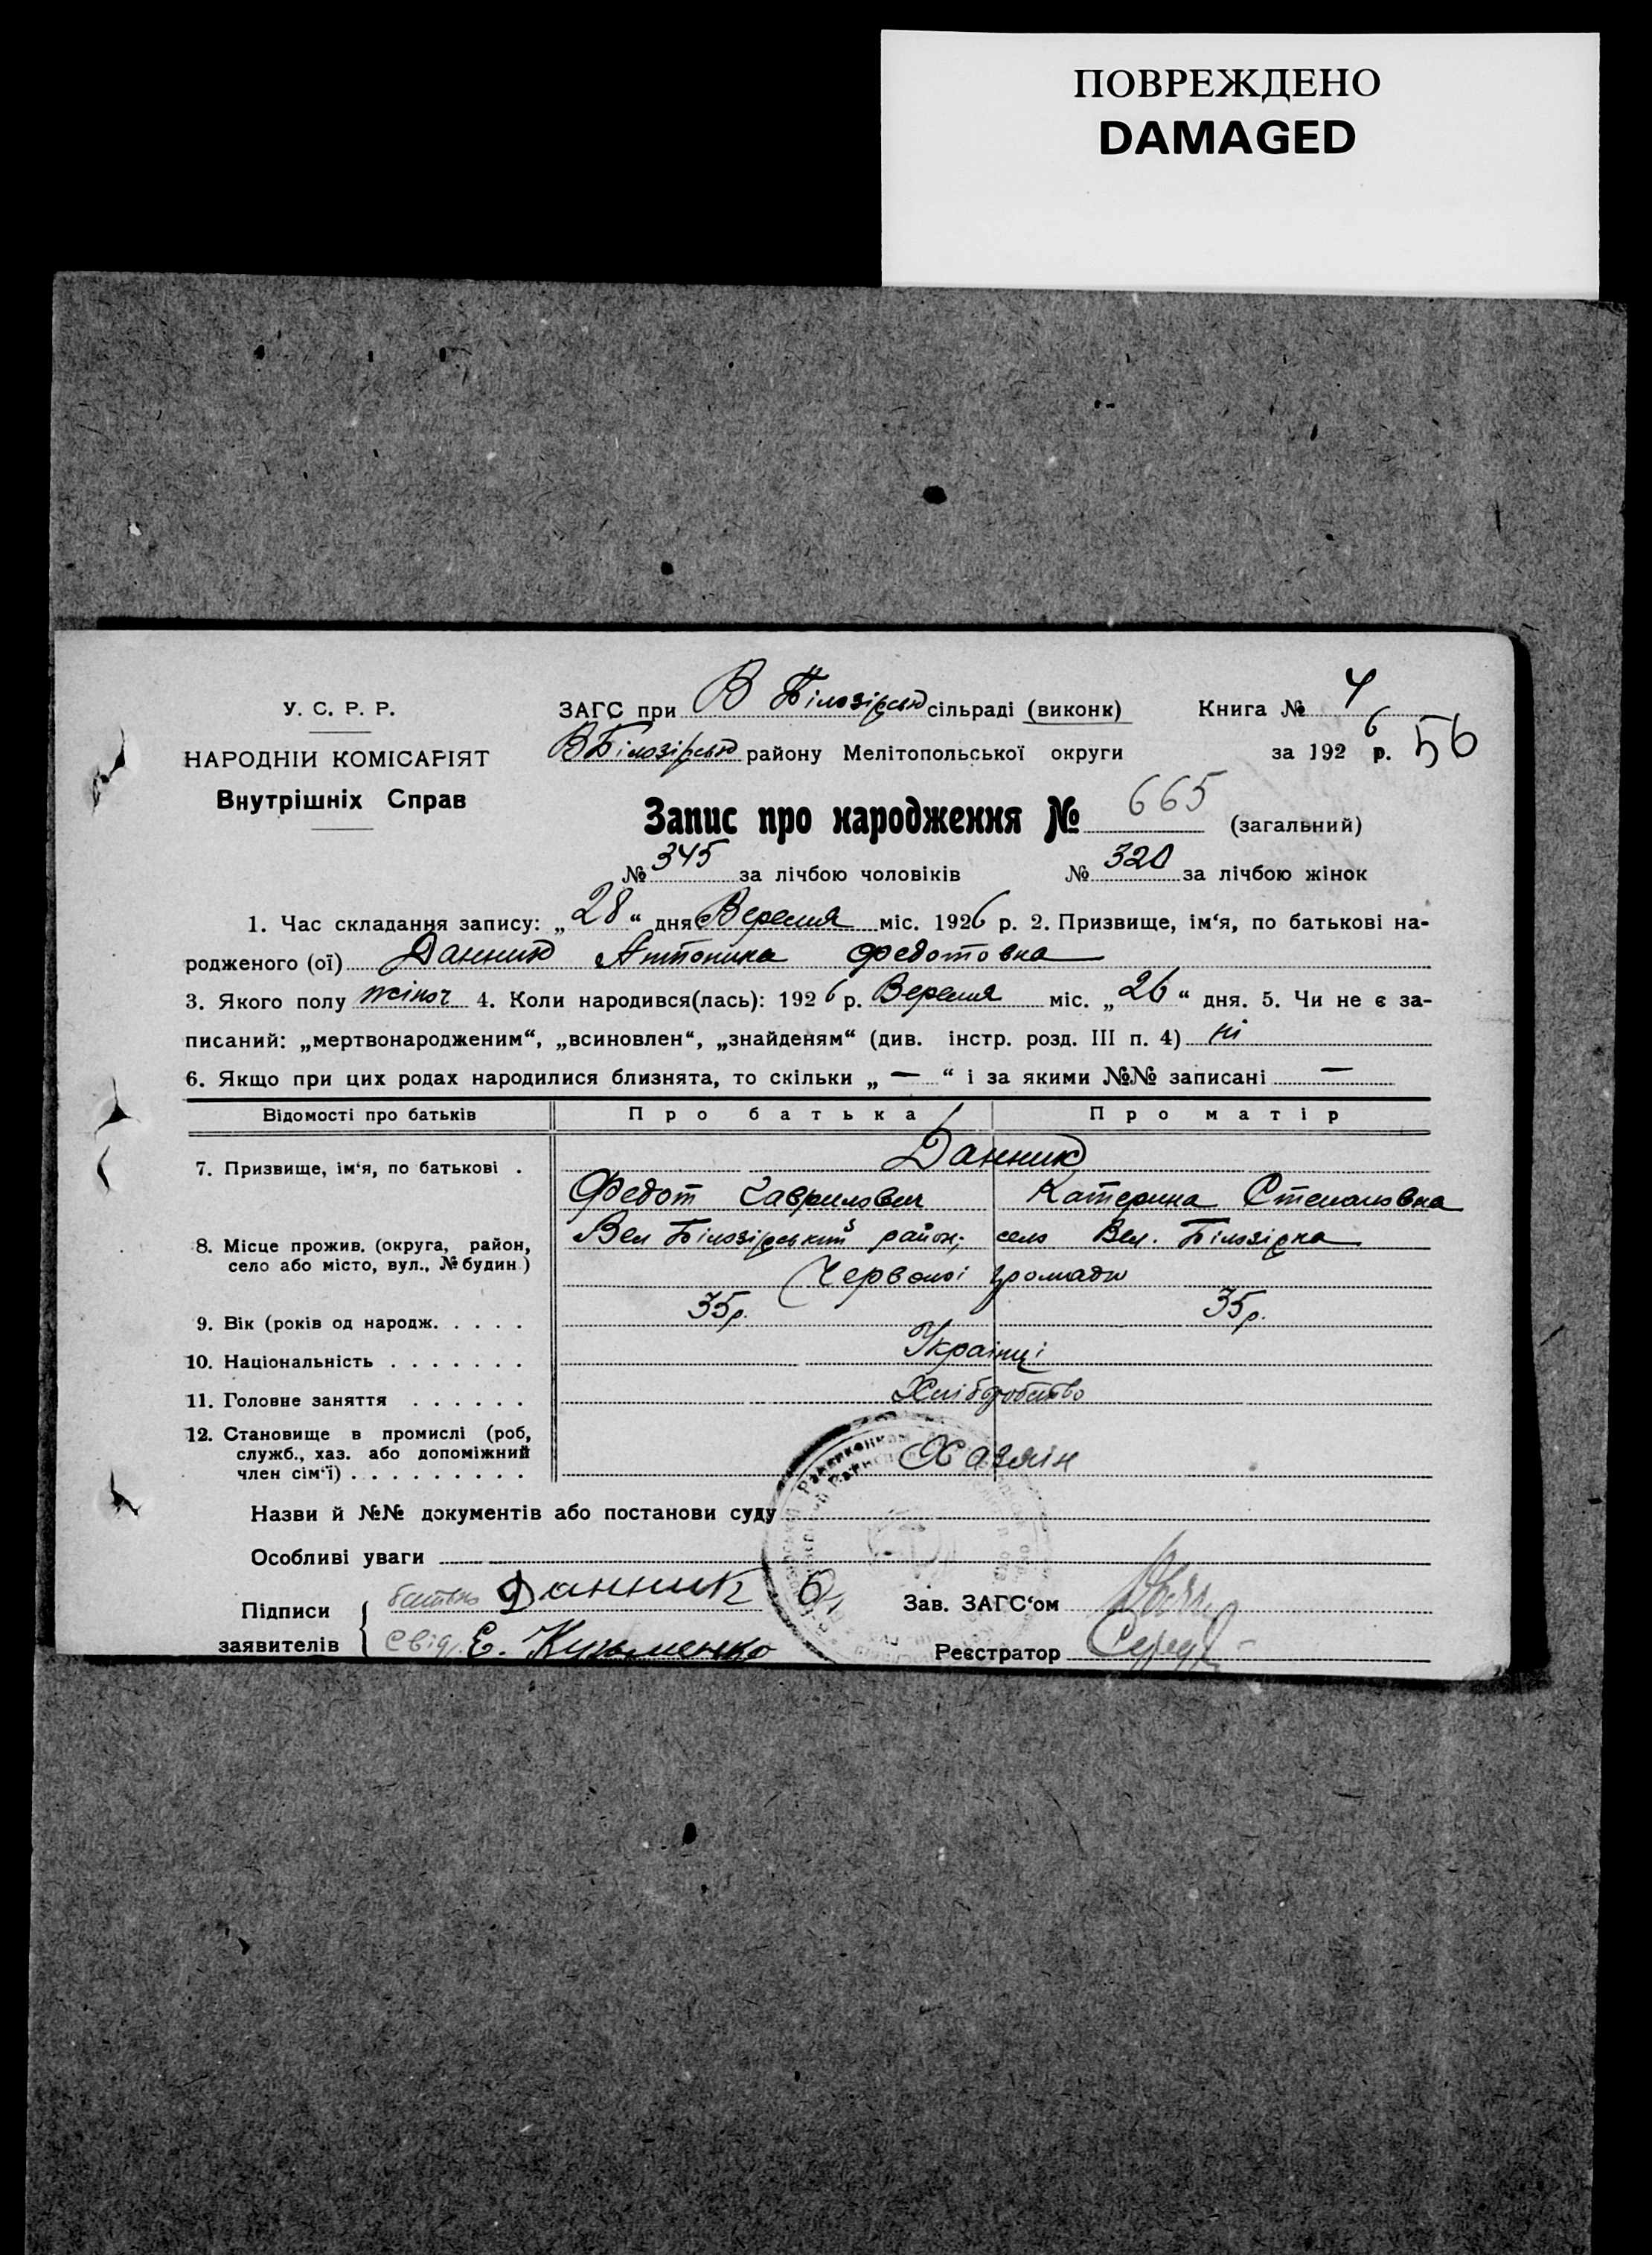 ПОВРЕЖДЕНО
DAMAGED
У. С. Р. Р.
НАРОДНІЙ КОМІСАРІЯТ
Внутрішніх Справ
ЗАГС при В Білозірськ сільраді (виконк)
Книга № 4
В Білозірськ району Мелітопольської округи
за 1926 р. 56
Запис про народження № 665 (загальний)
№ 345 за лічбою чоловіків № 320 за лічбою жінок
1. Час складання запису: „28“ дня Вересня міс. 1926 р. 2. Призвище, ім‘я, по батькові на-
родженого (ої) Данник Антонина Федотовна
3. Якого полу жіноч 4. Коли народився(лась): 1926 р. Вересня міс. „26“ дня. 5. Чи не є за-
писаний: „мертвонародженим“, „всиновлен“, „знайденям“ (див. інстр. розд. III п. 4) ні
6. Якщо при цих родах народилися близнята, то скільки „ — “ і за якими №№ записані —
Відомості про батьків Про батька Про матір
7. Призвище, ім‘я, по батькові . Данник
Федот Гаврилович Катерина Степановна
8. Місце прожив. (округа, район, село або місто, вул., № будин) Вел Білозірський район; село Вел. Білозірка
Червоної громади
9. Вік (років од народж. . . . . 35р. 35р.
10. Національність . . . . . . . Українці
11. Головне заняття . . . . . . Хліборобство
12. Становище в промислі (роб, служб., хаз. або допоміжний член сім‘ї) . . . . . . . . . Хазяїн
Назви й №№ документів або постанови суду
Особливі уваги
Підписи заявителів
батько Данник
Свід. Е. Кузьменко
Зав. ЗАГС‘ом
Реєстратор